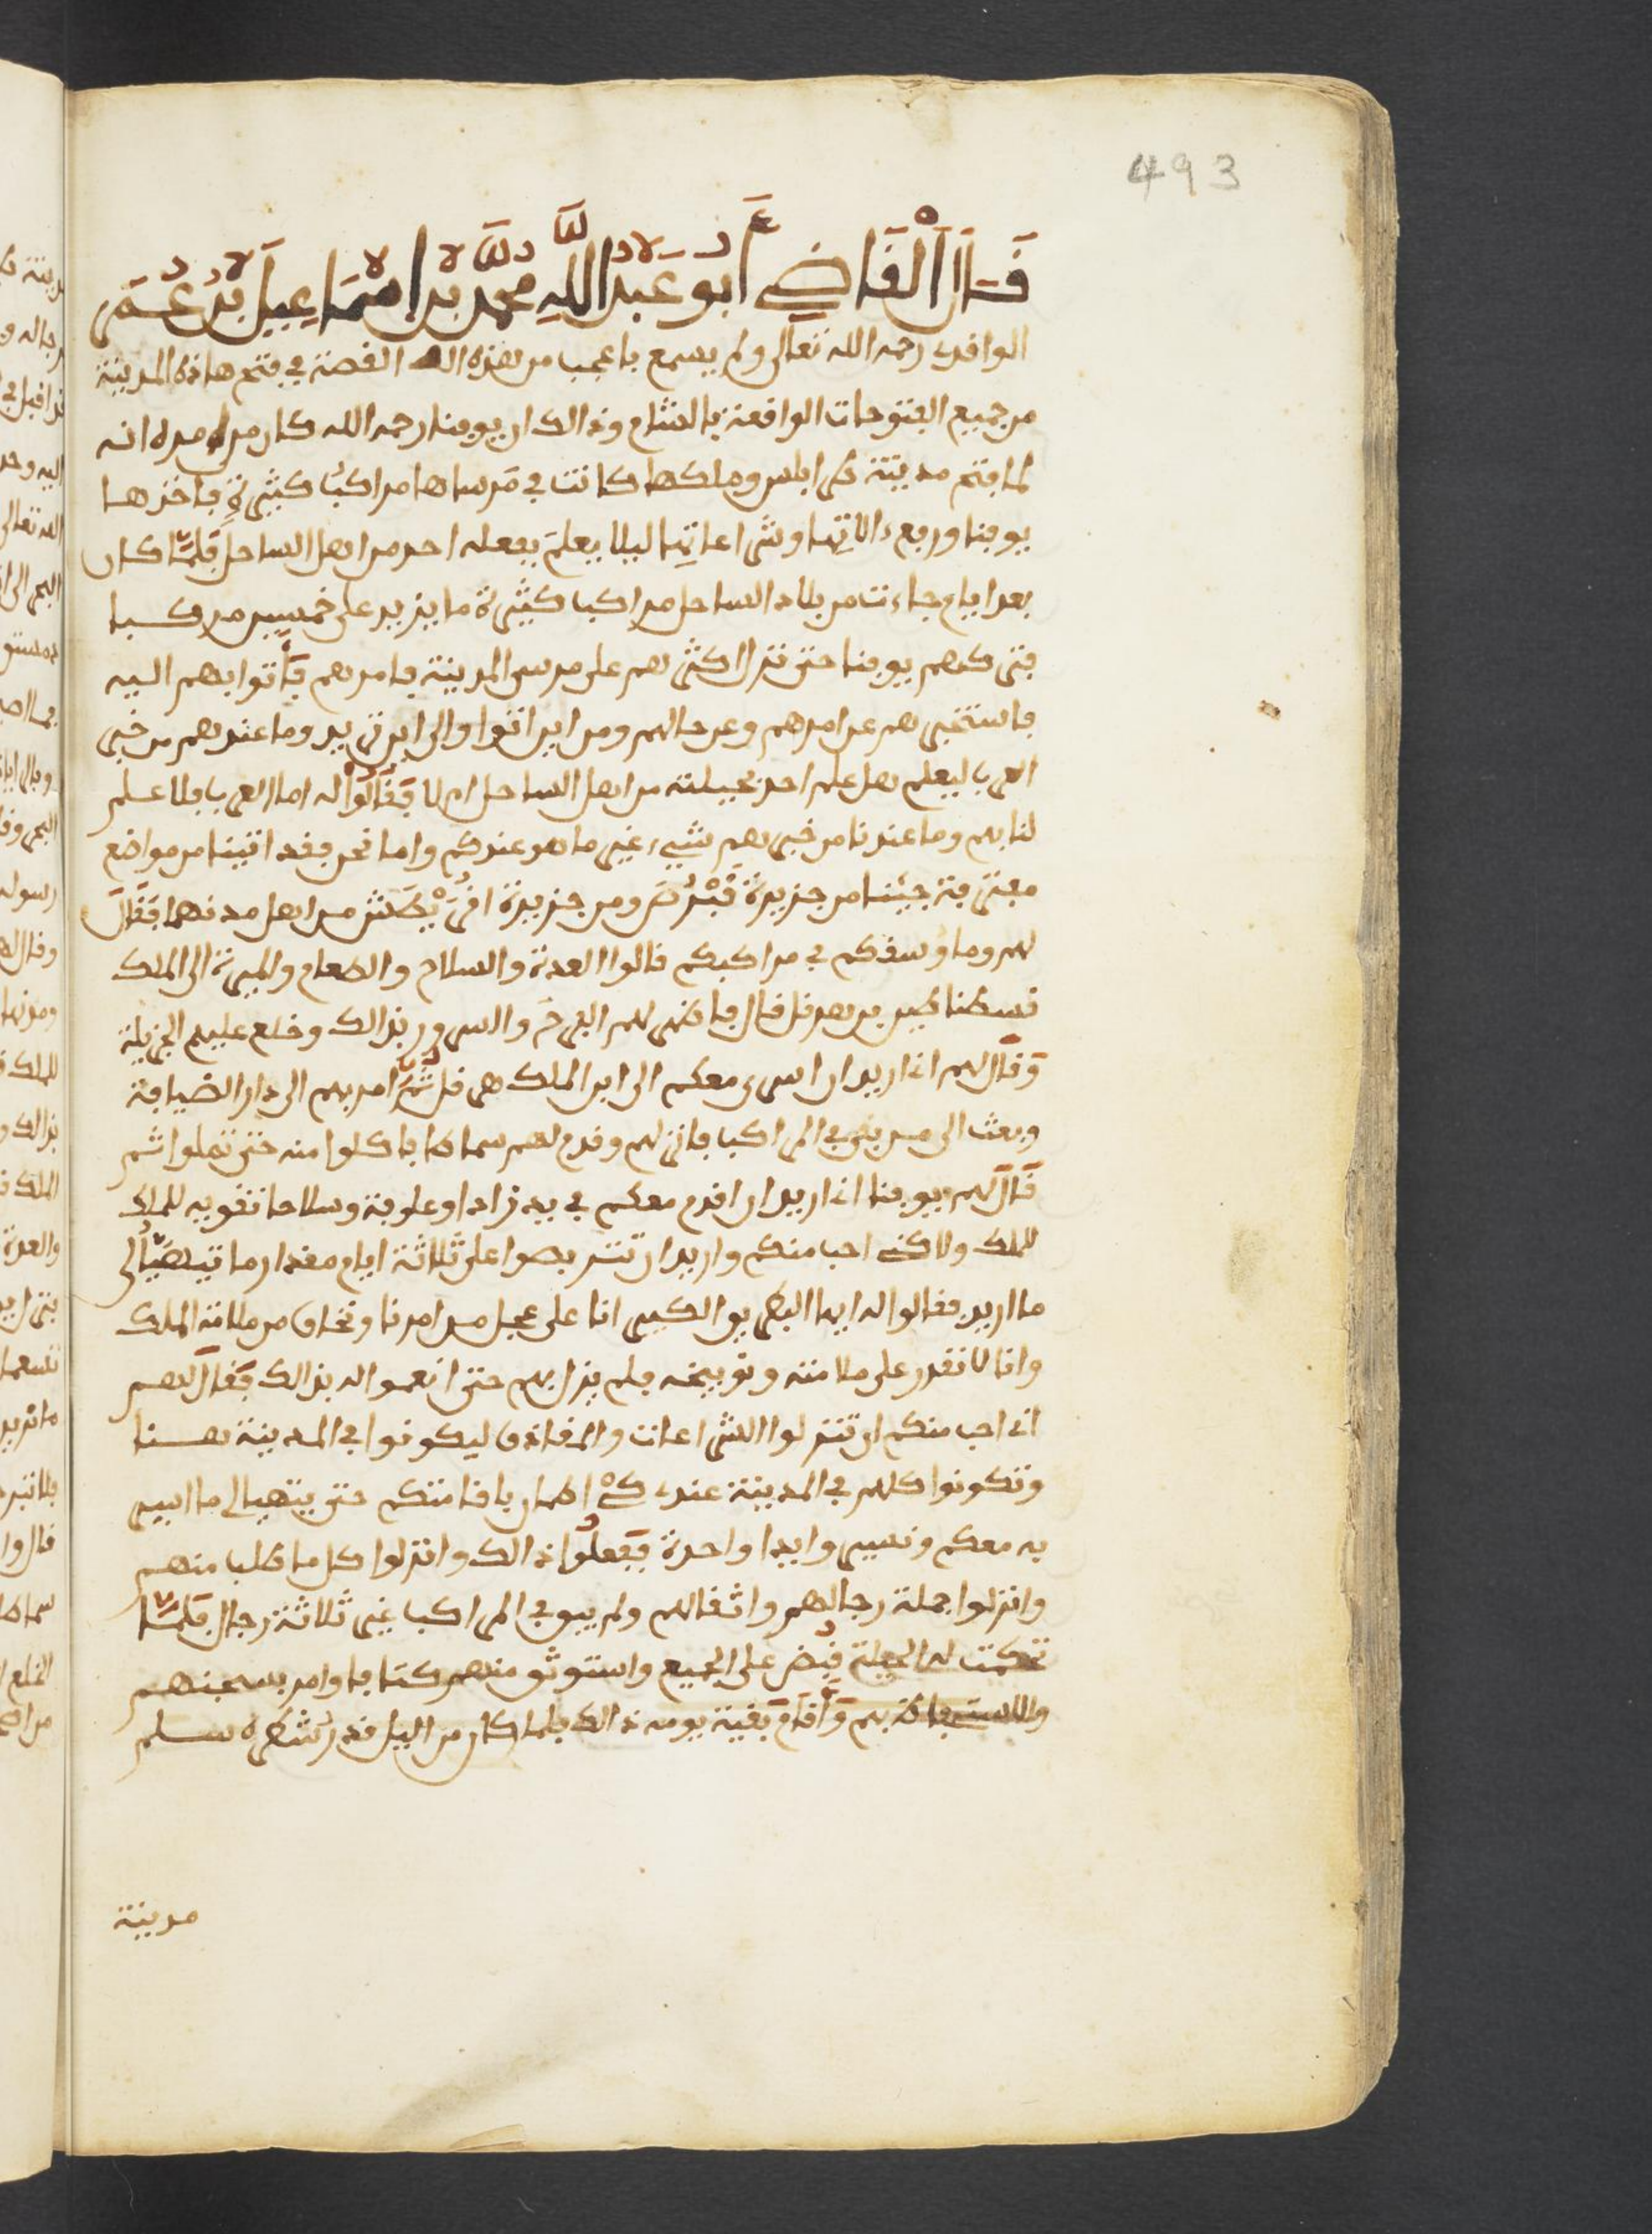 493
قَالَ الْقَاضِي أَبُو عَبْدِ اللَّهِ مُحَمَّد بْن اسْمَاعِيلَ بْنُ عُمَر
الواقدي رحمه الله تعالى ولم يسمع باعجب من هذه القصة في فتح هاذه المدينة
من جميع الفتوحات الواقعة بالشام وذالك ان يوفنا رحمه الله كان من امره انه
لما فتح مدينة طرابلس وملكها كانت في مَرساها مراكبُ كثيرة فاخذها
يوفنا ورفع ءالاتِها وشراعاتِها ليلا يعلَم بفعله احد من اهل الساحل فَلَمَّا كان
بعد ايام جاءت من بلاد الساحل مراكب كثيرة ما يزيد على خمسين مركبا
فتركهم يوفنا حتى نزل اكثرهم على مرسى المدينة فامر بهم فَأتوا بهم اليه
فاستخبرهم عن امرهم وعن حالهم ومن اين اتوا والى اين تريد وما عندهم من خبر
العرب ليعلم هل علم احد بحيلته من اهل الساحل ام لا فَقَالُوا له اما العرب فلا علم
لنا بهم وما عندنا من خبرهم شيء غير ما هو عندكم واما نحن فقد اتينا من مواضع
مفترقة جئنا من جزيرة قُبْرُص ومن جزيرة اقرِيْطَش من اهل مدنها فَقَالَ
لهم وما وُسقكم في مراكبكم قالوا العدة والسلاح والطعام والميرة الى الملك
قسطنطين بن هرقل قال فاظهر لهم الفرحَ والسرور بذالك وخلع عليهم الجزيلة
وَقَال لهم اني اريد ان اسير معكم الى ابن الملك هرقل ثُمَّ امر بهم الى دار الضيافة
وبعث الى من بقي في المراكب فانزلهم وقدم لهم سماطا فاكلوا منه حتى تملوا ثم
قَالَ لهم يوفنا اني اريد ان اقدم معكم في يد زادا وعلوفة وسلاحا تقويه للملك
للملك ولاكن احب منكم واريد ان تتربصوا علي ثلاثة ايام مقدار ما تيهيَّأ لي
ما اريد فقالوا له ايها البطريق الكبير انا على عجل من امرنا ونخاف من ملامة الملك
وانا لا نقدر على ملامته وتوبيخه فلم يزل بهم حتى انعموا له بذالك فَقَالَ لهم
اني احب منكم ان تنزلوا الشراعات والمقاذف ليكونوا في المدينة هنا
وتكونوا كلهم في المدينة عندي كَيْ اطمان باقامتكم حتى يتهيا لي ما اسير
به معكم ونسير وايدا واحدة فَفَعلُوا ذالك وانزلوا كل ما طلب منهم
وانزلوا جملة رجالهم واثقالهم ولم يبق في المراكب غير ثلاثة رجال فَلَمَّا
تحكمت له الحيلة قُبض على الجميع واستوثق منهم كتافا وامر بسجنهم
والاستحفاظ بهم وَأقَام بَقية يومه ذالك فلما كان من اليل قدر شطره سلم
مدينة